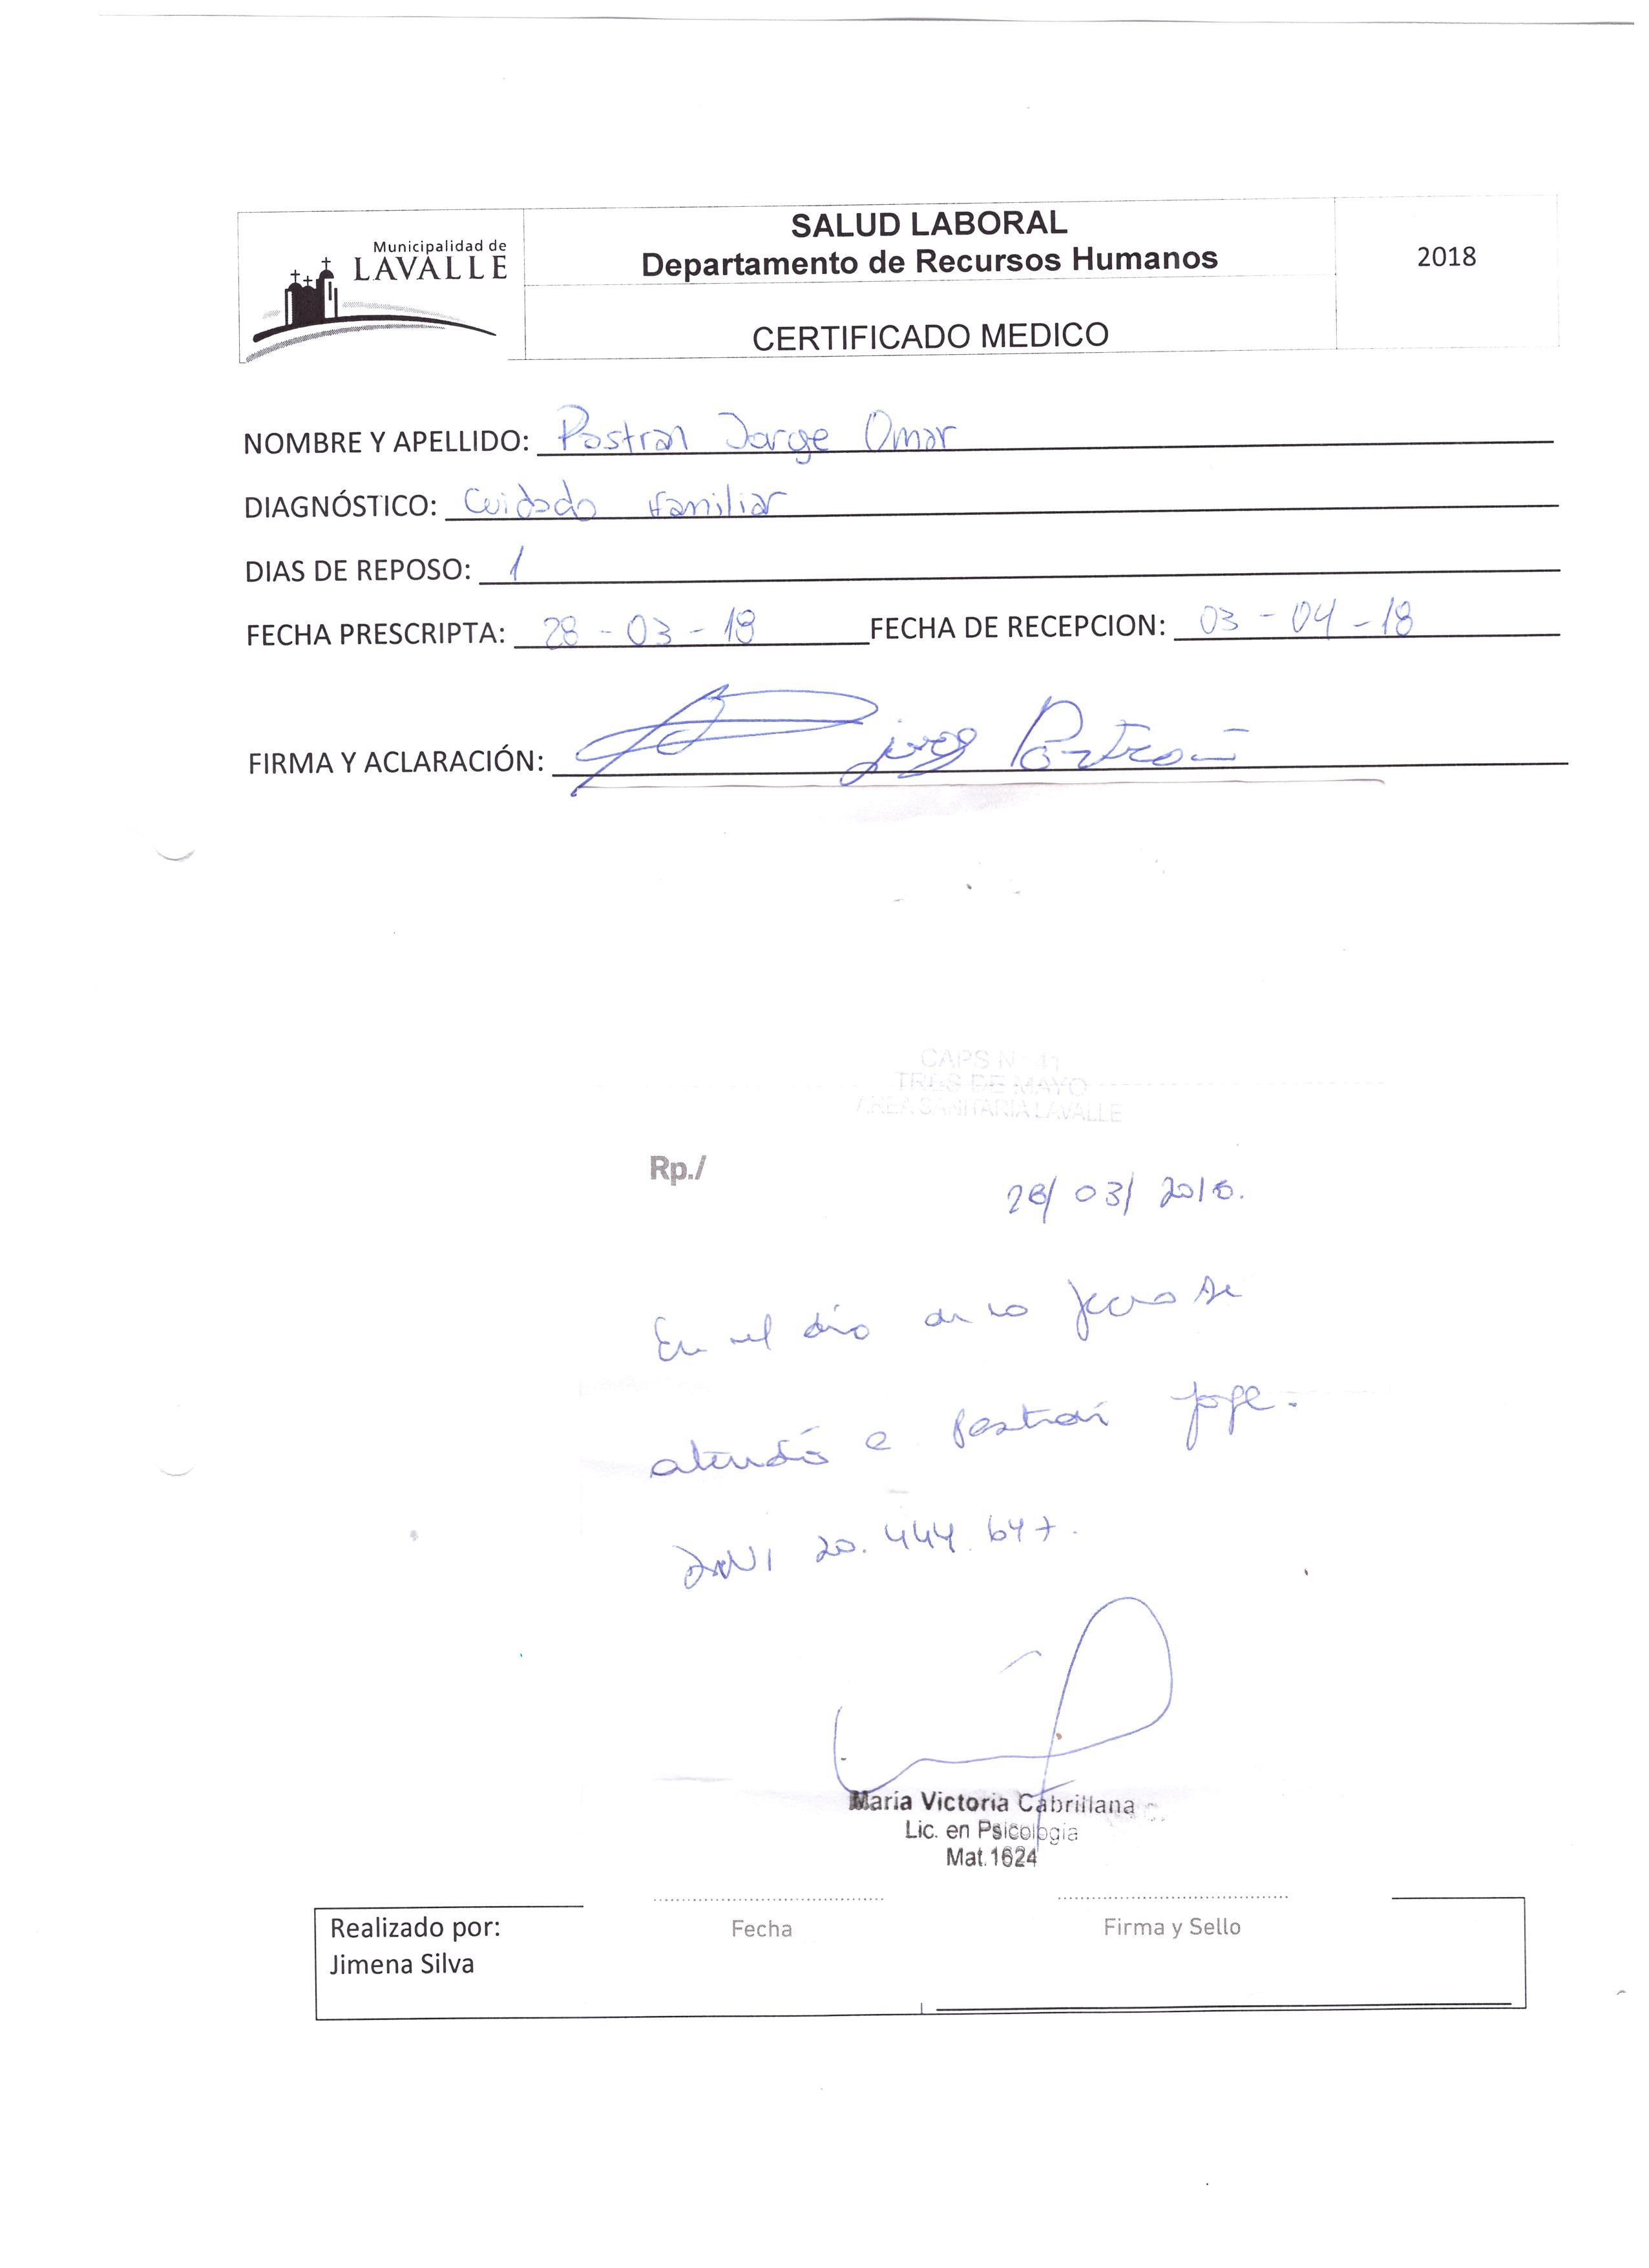 Municipalidad de
LAVALLE
SALUD LABORAL
Departamento de Recursos Humanos
2018
CERTIFICADO MEDICO
NOMBRE Y APELLIDO: Pastran Jorge Omar
DIAGNÓSTICO: Cuidado familiar
DIAS DE REPOSO: 1
FECHA PRESCRIPTA: 28-03-18 FECHA DE RECEPCION: 03-04-18
FIRMA Y ACLARACIÓN: Jorge Pastran
CAPS N 41
TRES DE MAYO
AREA SANITARIA LAVALLE
Rp./
28/03/2018.
En el día de la fecha se
atendió a Pastran Jorge.
DNI 20.444.647.
Maria Victoria Cabrillana
Lic. en Psicologia
Mat.1624
Realizado por:
Jimena Silva
Fecha
Firma y Sello